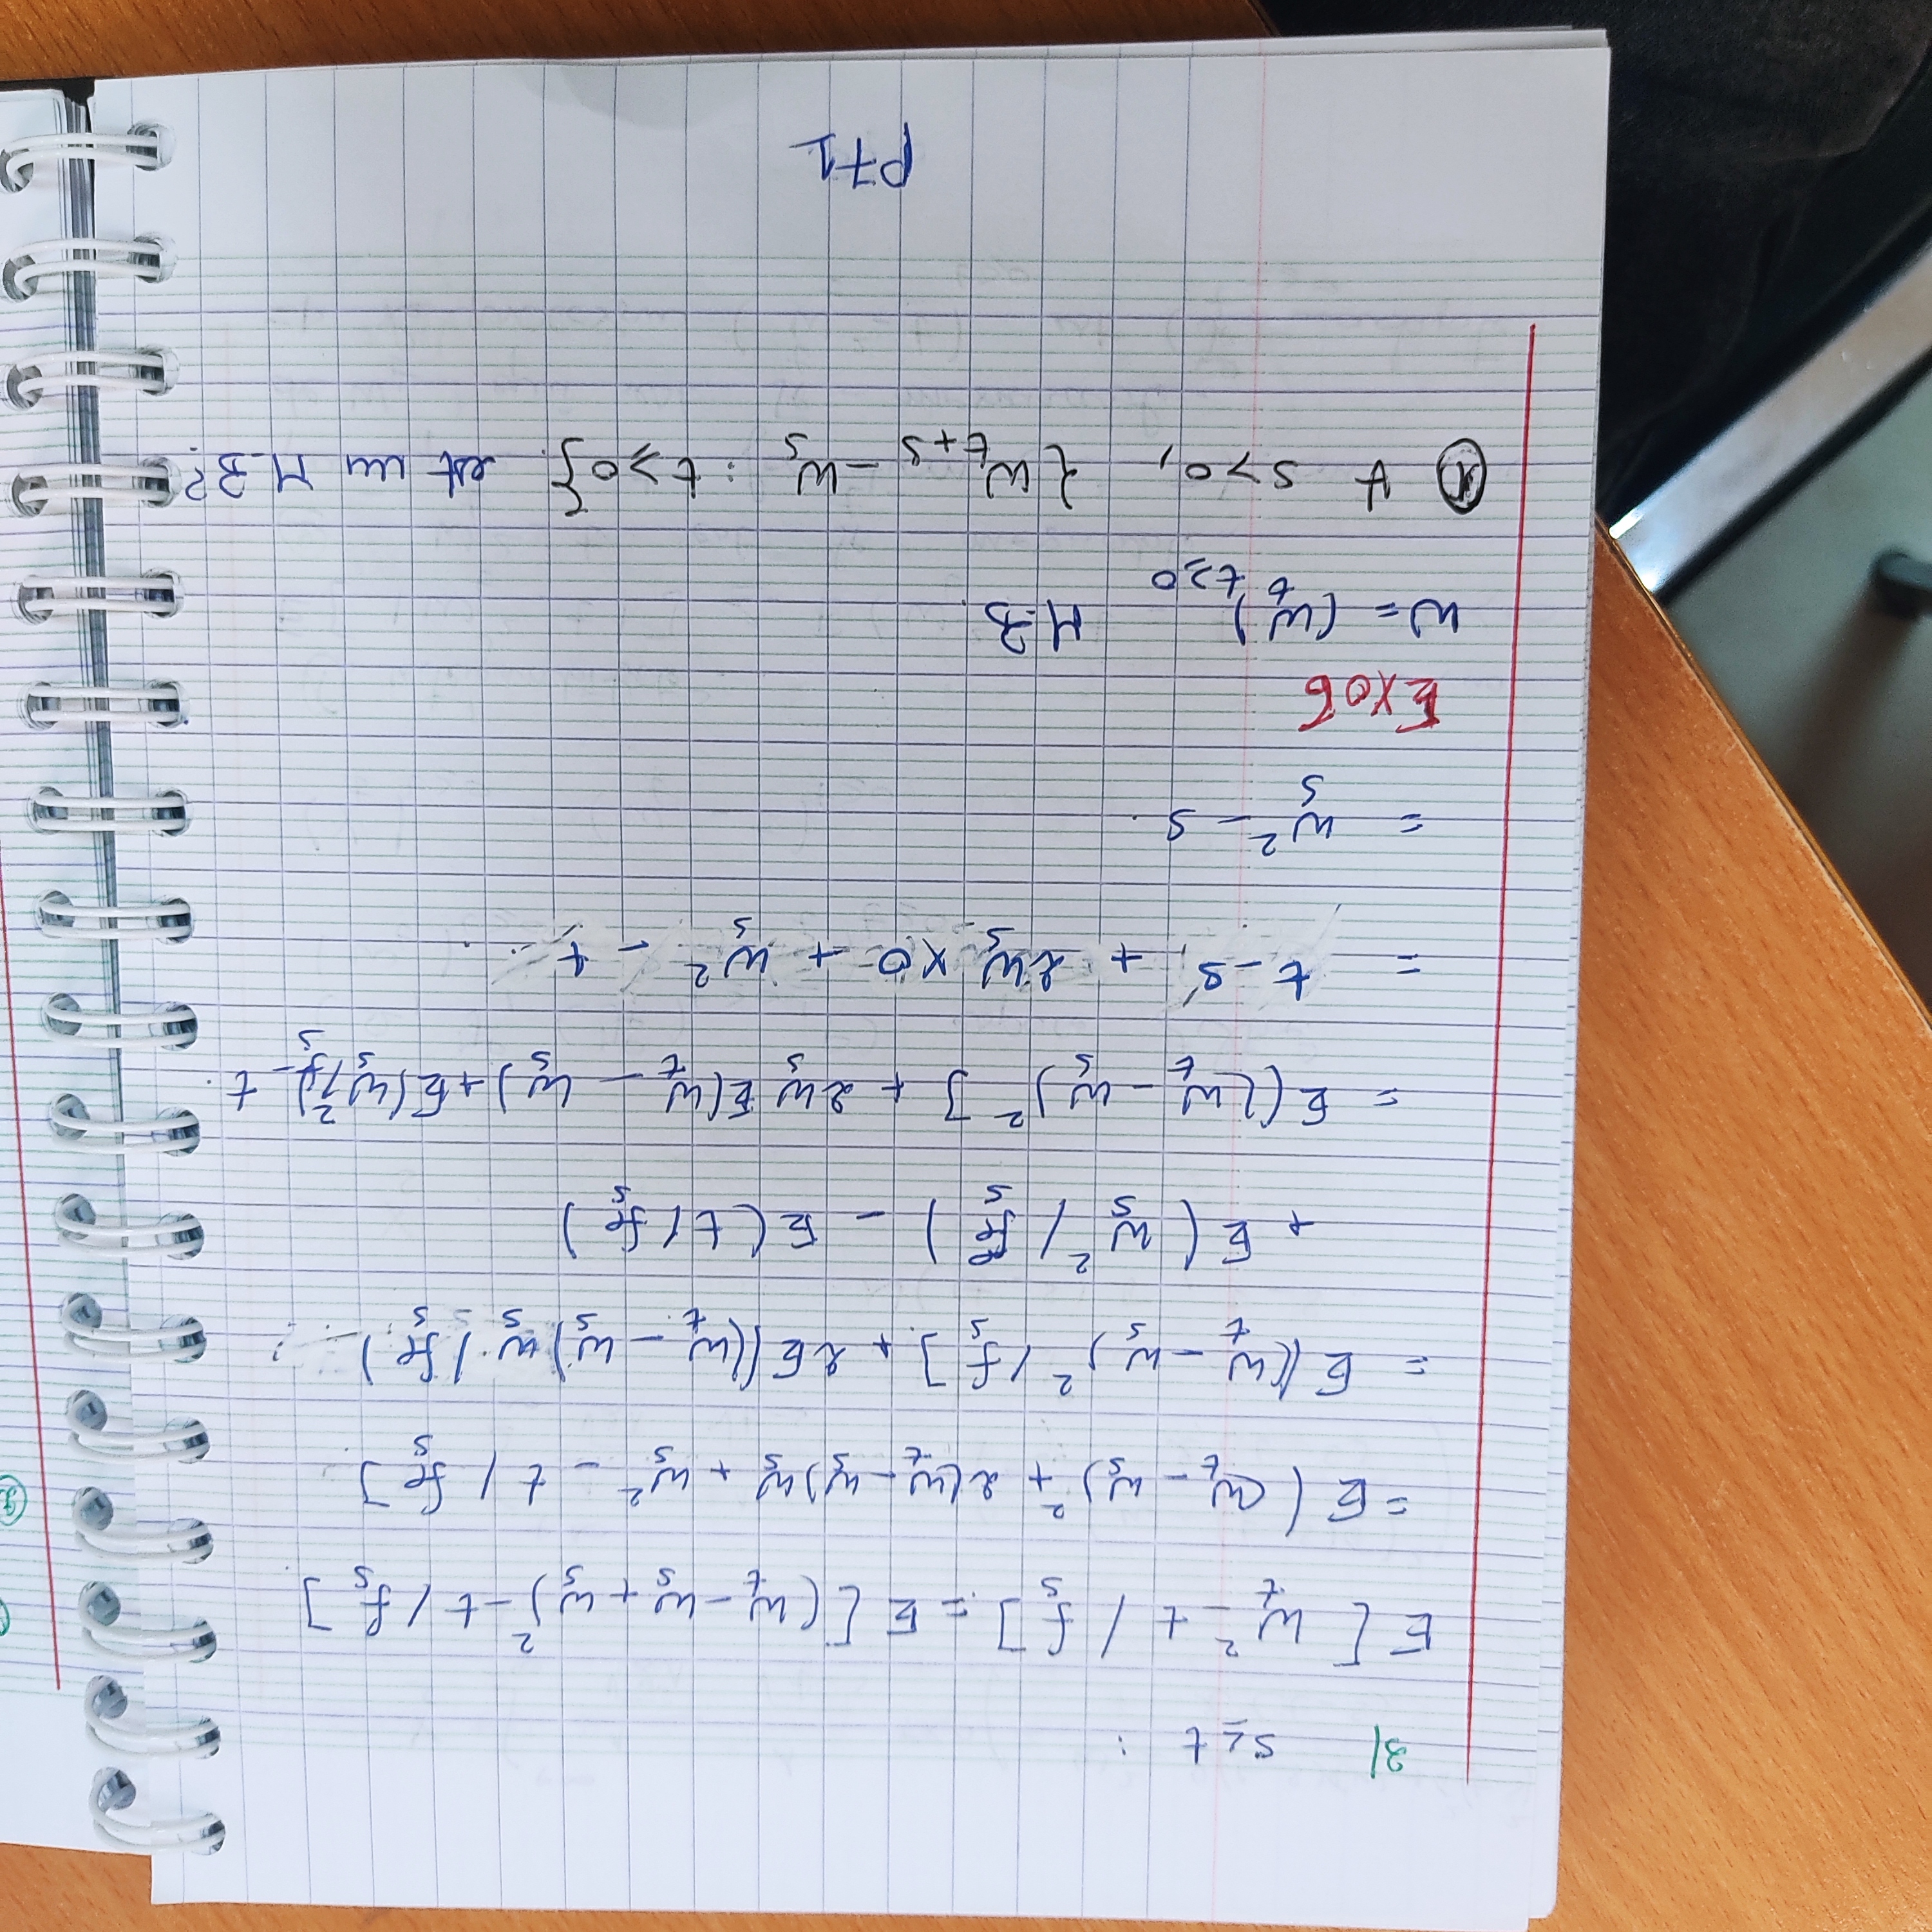 3/ s ≤ t :
E[ W_t^2 - t / f_s ] = E[ (W_t - W_s + W_s)^2 - t / f_s ]
= E( (W_t - W_s)^2 + 2(W_t - W_s) W_s + W_s^2 - t / f_s ]
= E((W_t - W_s)^2 / f_s ] + 2E((W_t - W_s) W_s / f_s )
+ E( W_s^2 / f_s ) - E( t / f_s )
= E((W_t - W_s)^2 ] + 2W_s E(W_t - W_s) + E(W_s^2 / f_s) - t.
= t - s + 2W_s × 0 + W_s^2 - t
= W_s^2 - s.
EXO 6
W = (W_t)_{t≥0} M.B.
① ∀ s > 0, {W_{t+s} - W_s : t ≥ 0} est un M.B?
P71